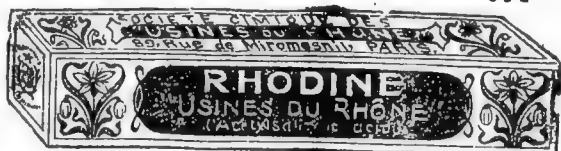 SOCIÉTÉ CHIMIQUE DES
USINES DU RHÔNE
89, Rue de Miromesnil, PARIS.
RHODINE
USINES DU RHÔNE